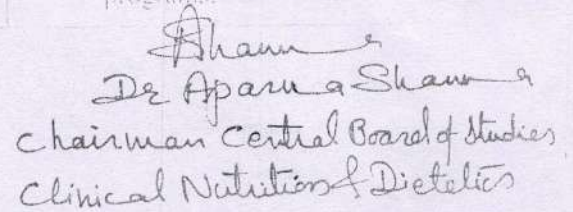 Dr Aparna Sharma
Chairman Central Board of Studies
Clinical Nutrition & Dietetics